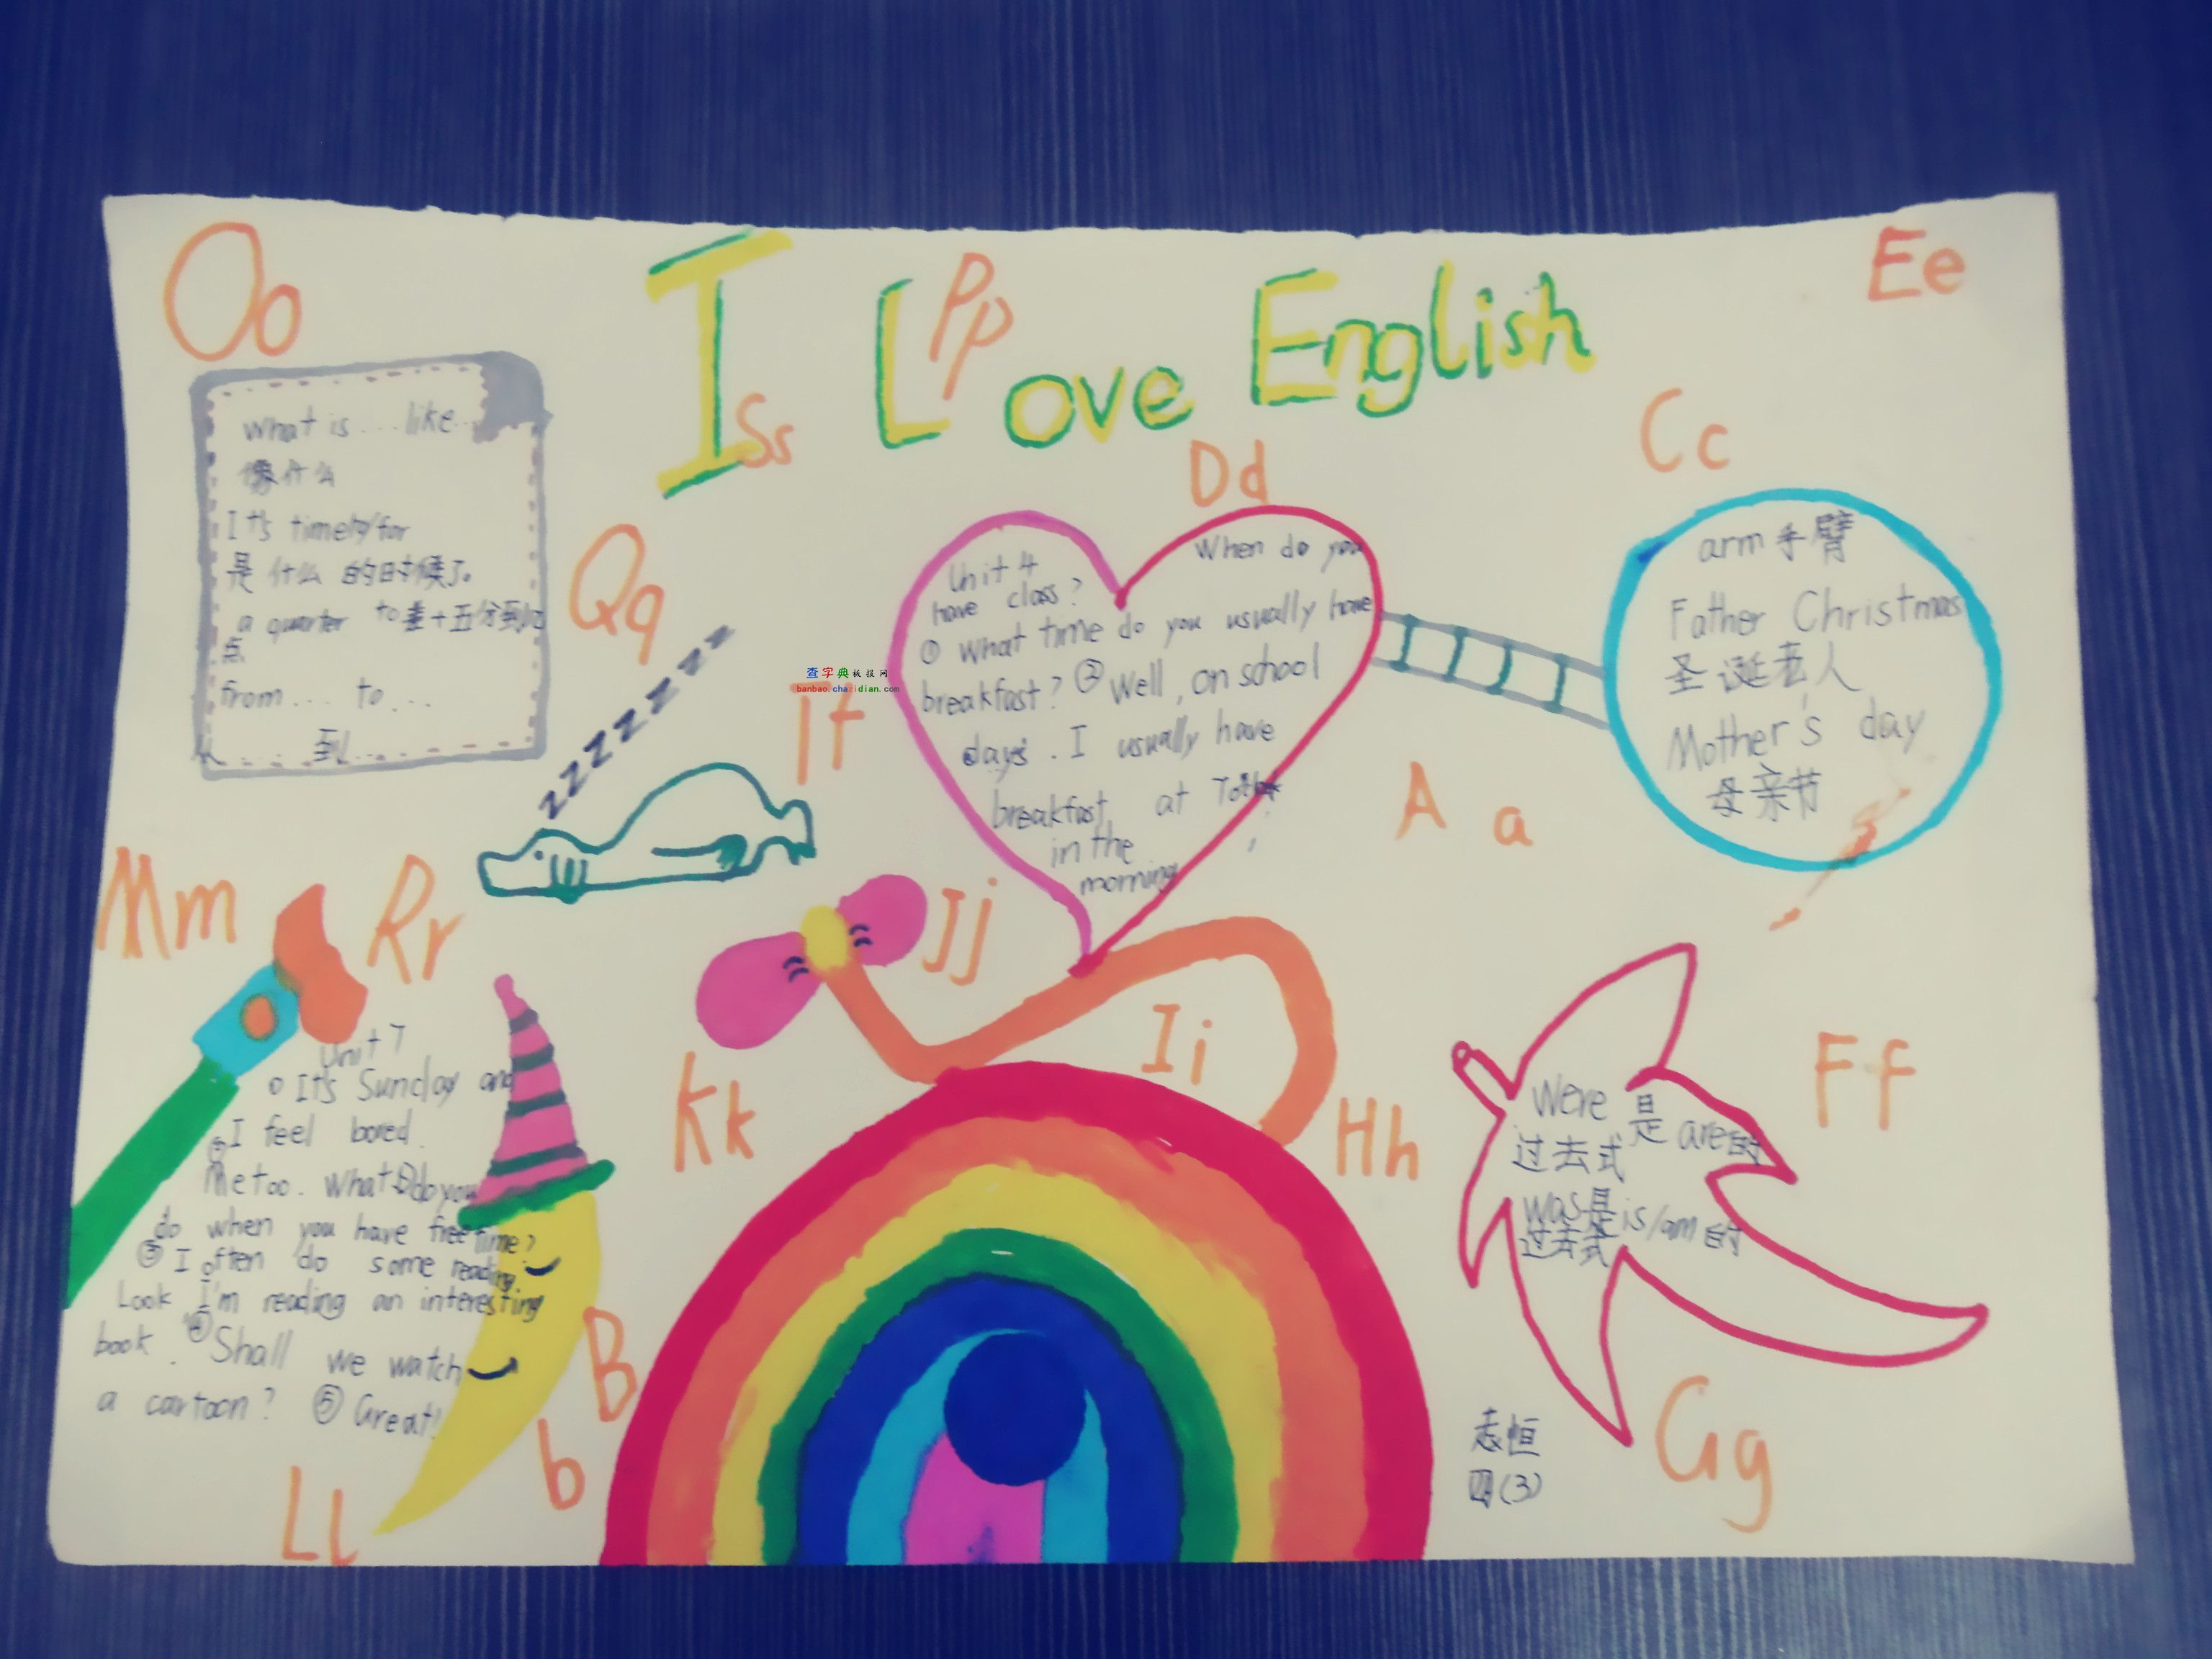 Oo
I Love English
Pp
Ss
Ee
What is ... like ...
像什么
It's time to/for
是什么的时候了。
a quarter to 差十五分到
点
from ... to ...
从 ...... 到 ...
Qq
zzzzzzzz
查字典板报网
banbao.chazidian.com
Dd
Unit 4 When do you
have class?
① What time do you usually have
breakfast? ② Well, on school
days. I usually have
breakfast at
in the
morning
Cc
arm 手臂
Father Christmas
圣诞老人
Mother's day
母亲节
A a
Mm
Rr
Jj
Ii
Kk
Hh
Ff
Unit 7
① It's Sunday and
I feel bored.
②
Me too. What do you
do when you have free time?
③ I often do some reading.
Look I'm reading an interesting
book. ④ Shall we watch
a cartoon? ⑤ Great!
B
b
Ll
Were 是 are的
过去式
was是is/am的
过去式
Gg
志恒
四(3)